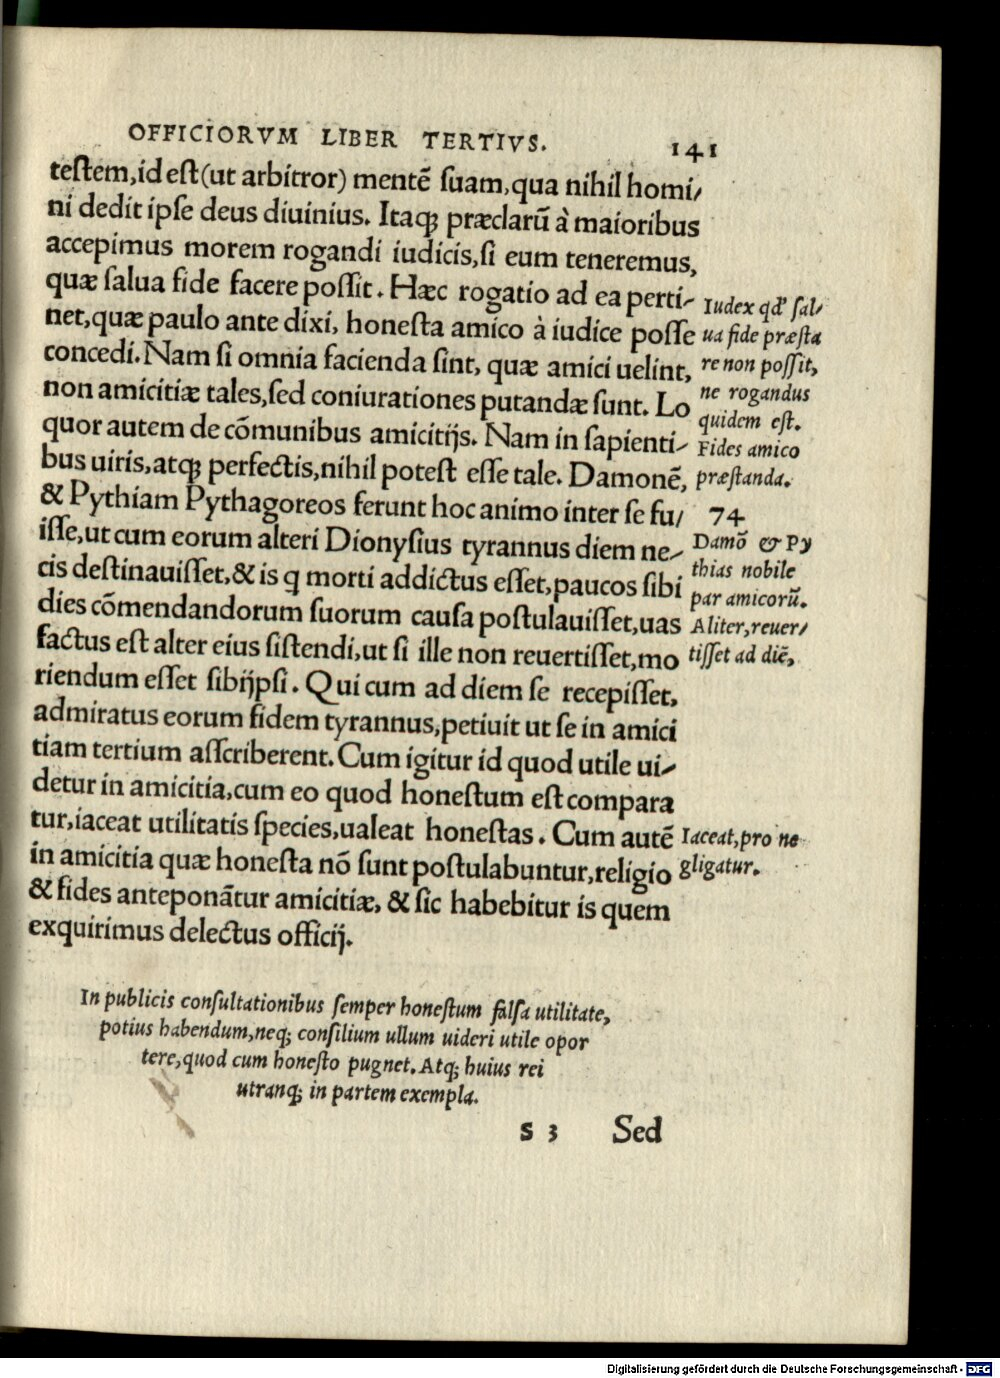 OFFICIORVM LIBER TERTIVS. 141
teſtem,id eſt(ut arbitror) mentē ſuam,qua nihil homi/
ni dedit ipſe deus diuinius. Itaqꝫ præclarū à maioribus
accepimus morem rogandi iudicis,ſi eum teneremus,
quæ ſalua fide facere poſſit. Hæc rogatio ad ea perti/
net,quæ paulo ante dixi, honeſta amico à iudice poſſe
concedi. Nam ſi omnia facienda ſint, quæ amici uelint,
non amicitiæ tales,ſed coniurationes putandæ ſunt. Lo
quor autem de cōmunibus amicitijs. Nam in ſapienti/
bus uiris,atqꝫ perfectis,nihil poteſt eſſe tale. Damonē,
& Pythiam Pythagoreos ferunt hoc animo inter ſe fu/
iſſe,ut cum eorum alteri Dionyſius tyrannus diem ne/
cis deſtinauiſſet,& is q morti addictus eſſet,paucos ſibi
dies cōmendandorum ſuorum cauſa poſtulauiſſet,uas
factus eſt alter eius ſiſtendi,ut ſi ille non reuertiſſet,mo
riendum eſſet ſibijpſi. Qui cum ad diem ſe recepiſſet,
admiratus eorum fidem tyrannus,petiuit ut ſe in amici
tiam tertium aſſcriberent. Cum igitur id quod utile ui/
detur in amicitia,cum eo quod honeſtum eſt compara
tur,iaceat utilitatis ſpecies,ualeat honeſtas. Cum autē
in amicitia quæ honeſta nō ſunt poſtulabuntur,religio
& fides anteponātur amicitiæ, & ſic habebitur is quem
exquirimus delectus officij.
Iudex qđ ſal/
ua fide præſta
re non poſſit,
ne rogandus
quidem eſt.
Fides amico
præſtanda.
74
Damō & Py
thias nobile
par amicorū.
Aliter,reuer/
tiſſet ad diē,
Iaceat,pro ne
gligatur.
In publicis conſultationibus ſemper honeſtum falſa utilitate,
potius habendum,neqꝫ conſilium ullum uideri utile opor
tere,quod cum honeſto pugnet. Atqꝫ huius rei
utranqꝫ in partem exempla.
S 3 Sed
Digitalisierung gefördert durch die Deutsche Forschungsgemeinschaft - DFG